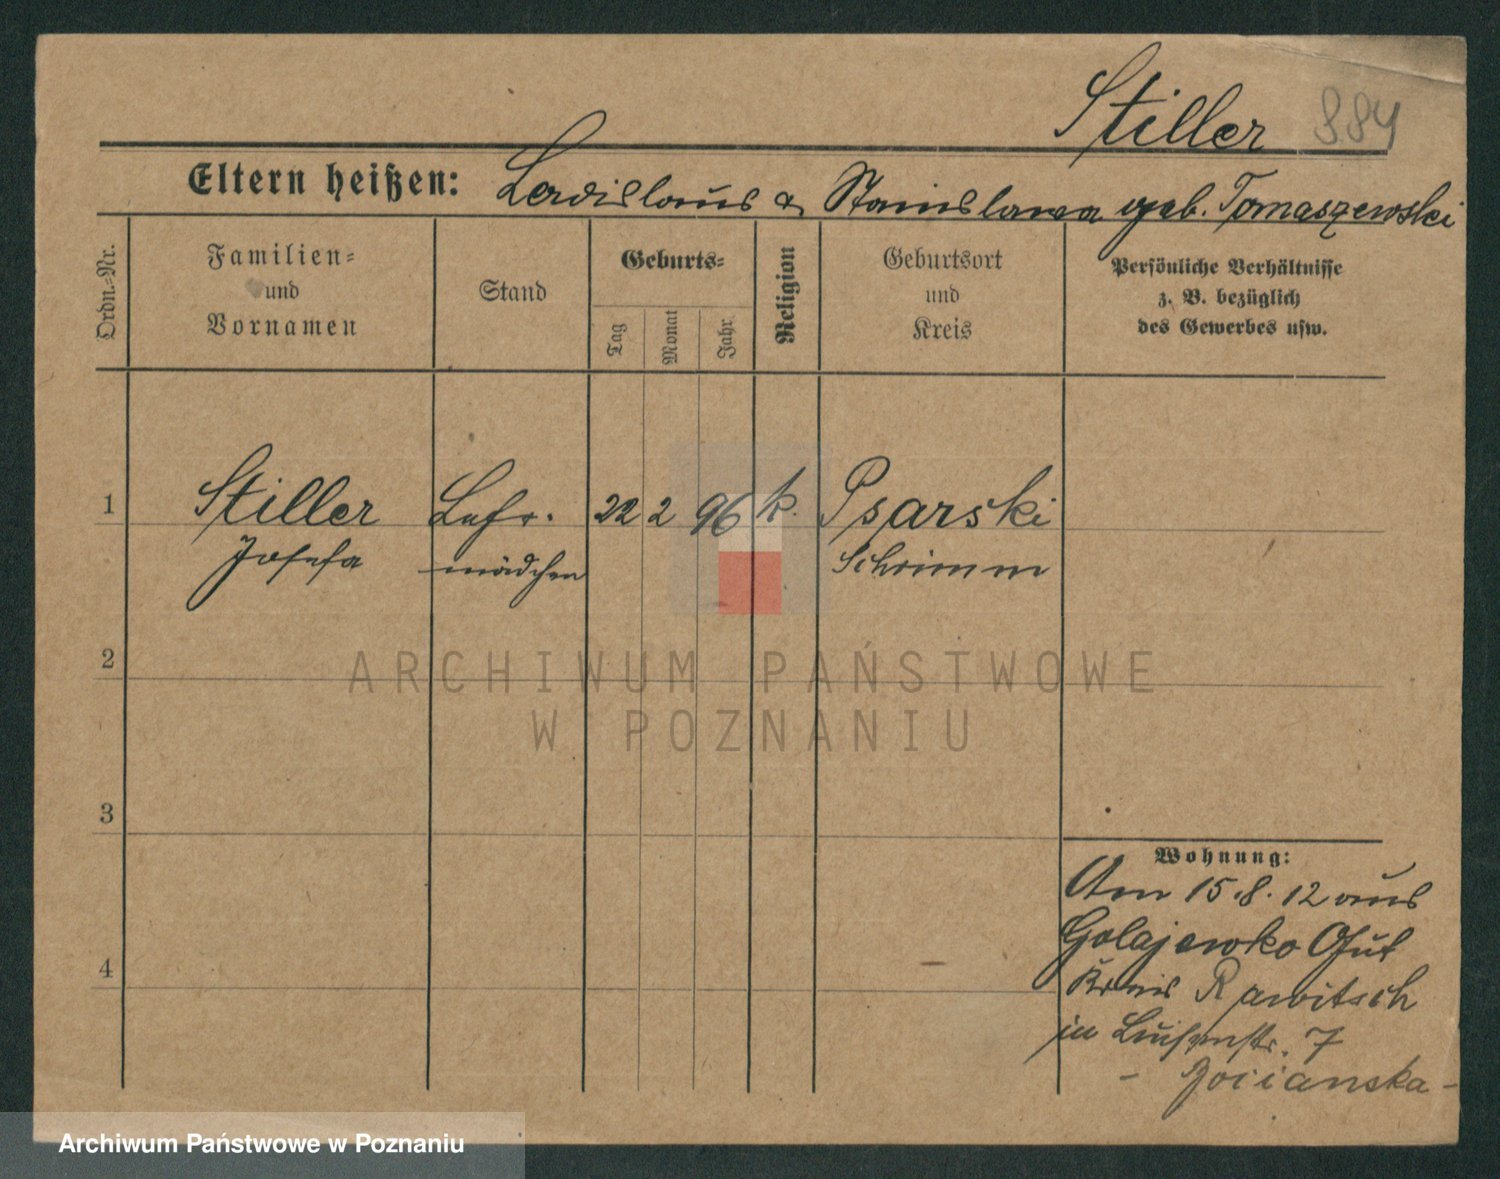 Stiller 884
Eltern heißen: Ladislaus & Stanislawa geb. Tomaszewski
Ordn.-Nr.
Familien-
und
Vornamen
Stand
Geburts-
Tag
Monat
Jahr.
Religion
Geburtsort
und
Kreis
Persönliche Verhältnisse
z. B. bezüglich
des Gewerbes usw.
1 Stiller Lehr- 22 2 96 k. Psarski
Josefa mädchen Schrimm
2
ARCHIWUM PAŃSTWOWE
W POZNANIU
3
Wohnung:
Am 15.8.12 aus
Golajewko Gut
4
Kreis Rawitsch
in Luisenstr. 7
Archiwum Państwowe w Poznaniu